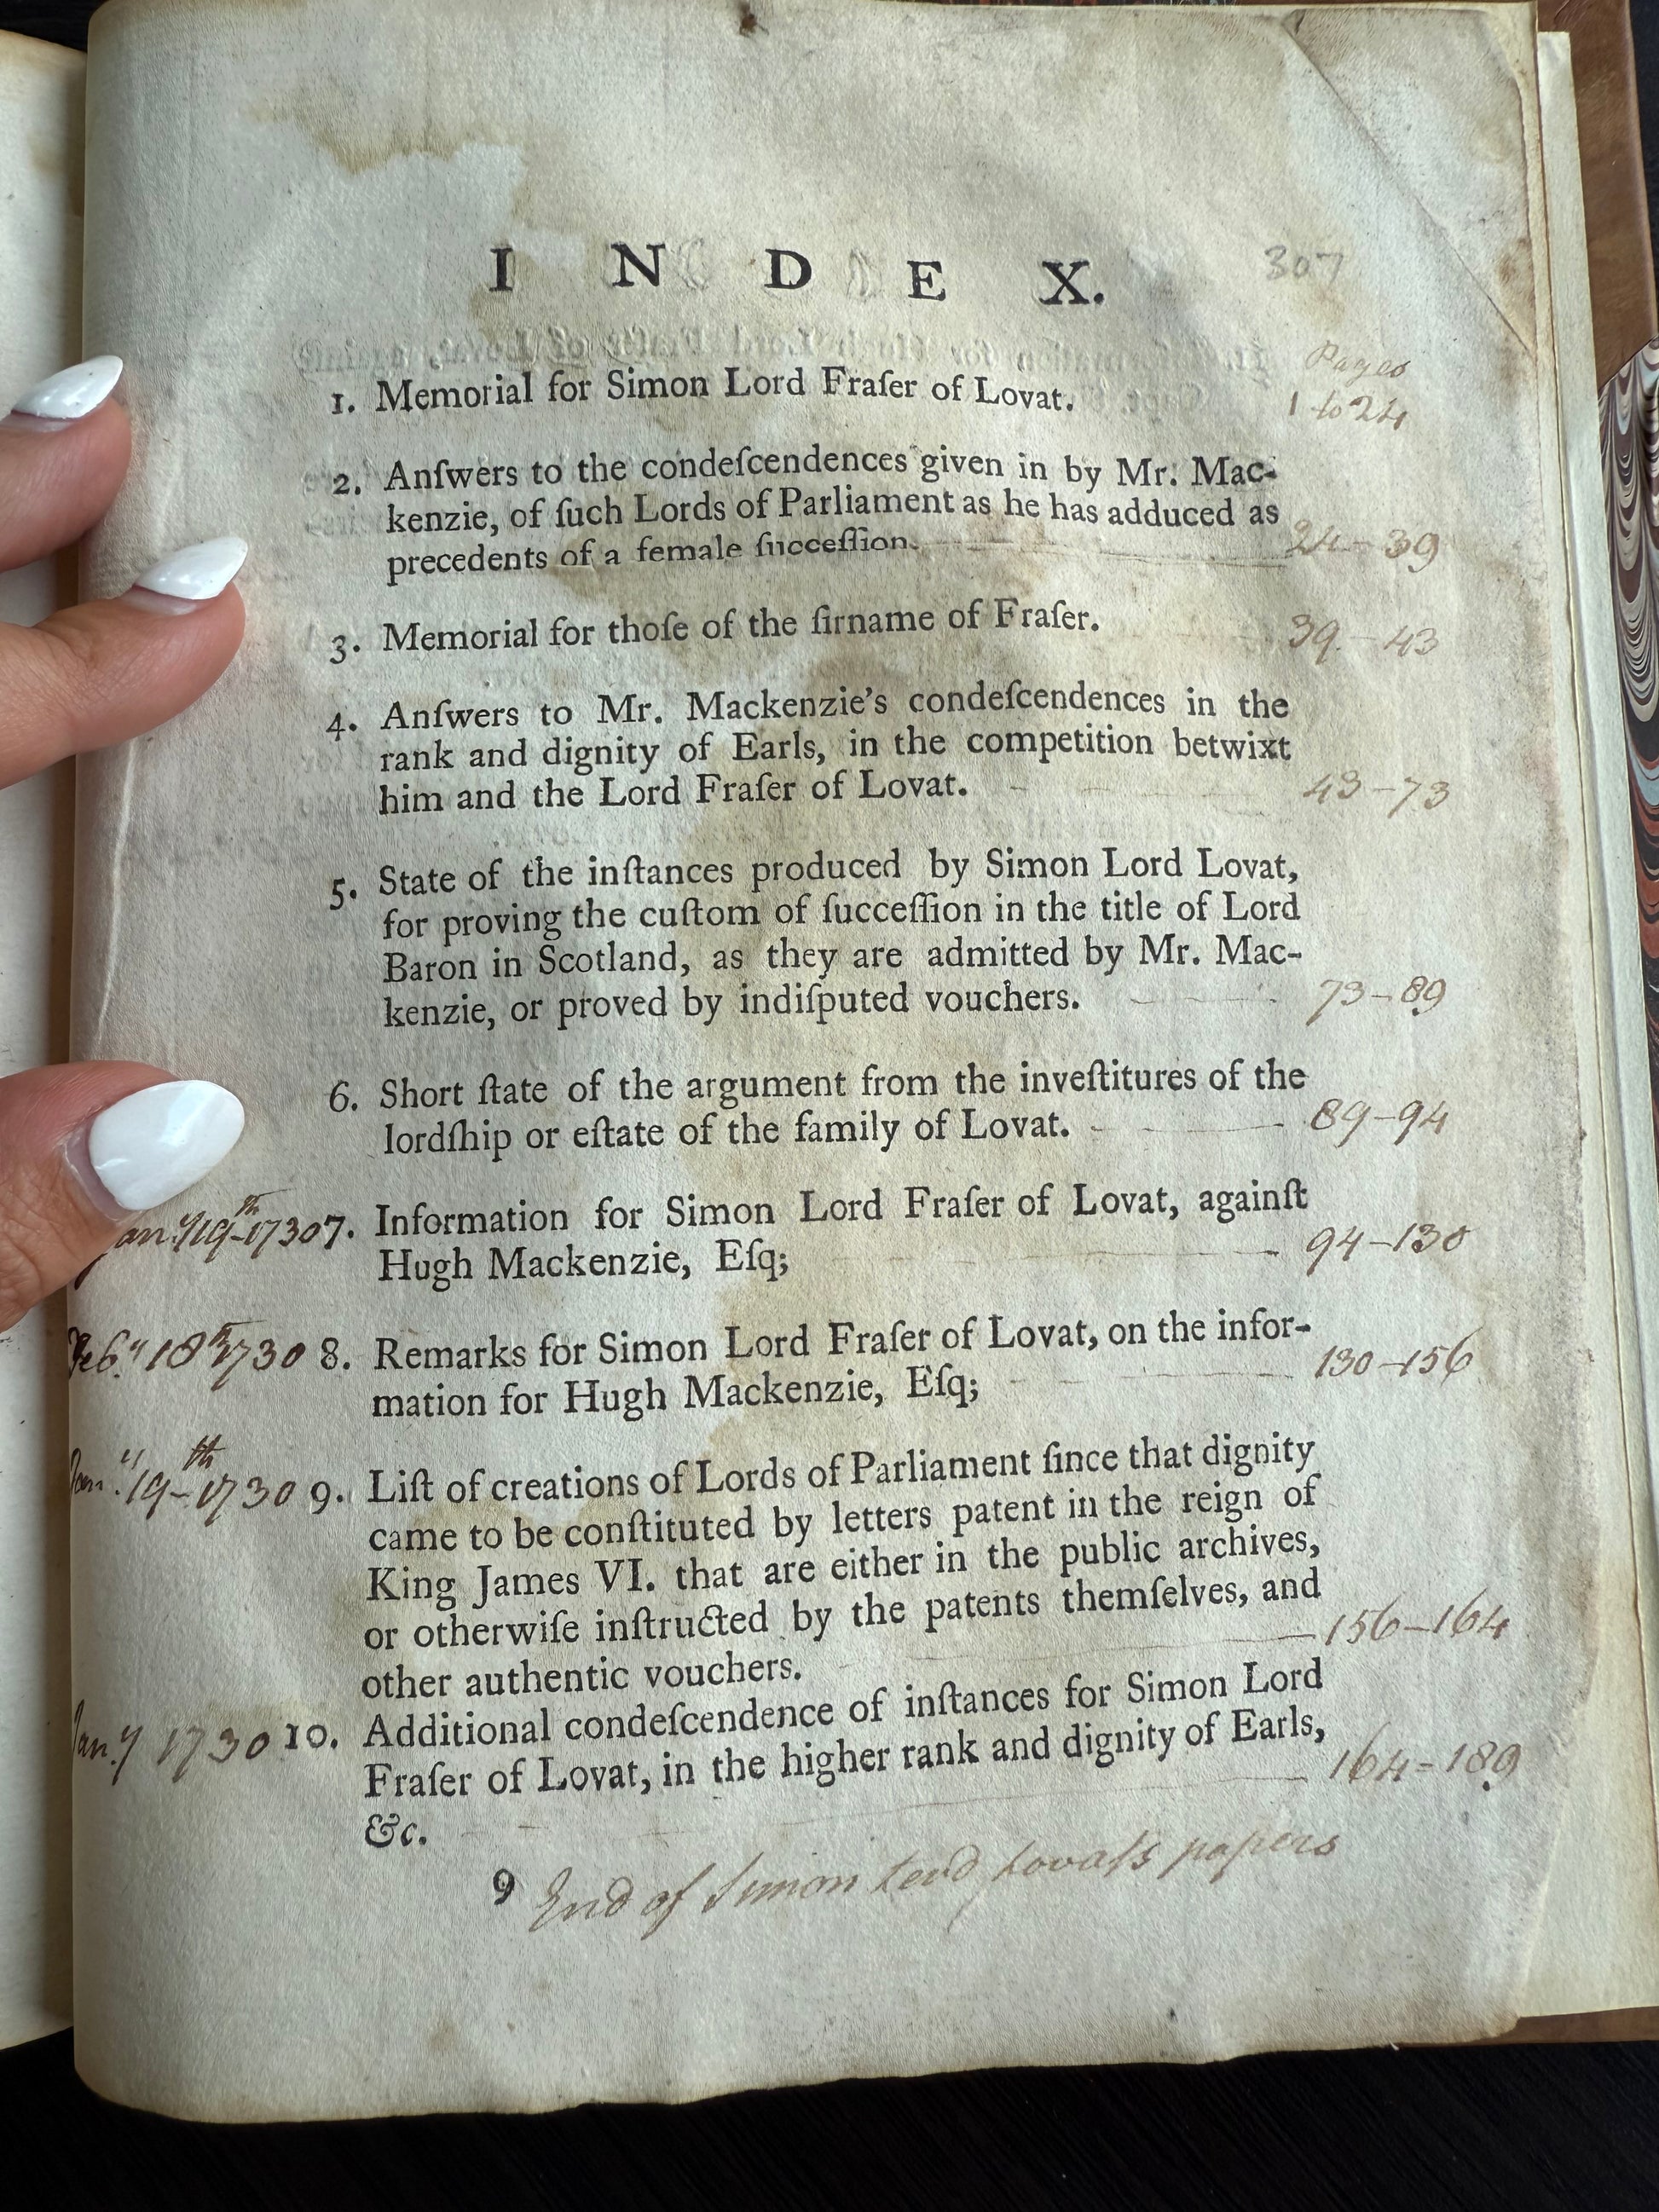 I N D E X. 307
Pages
1. Memorial for Simon Lord Fraſer of Lovat. 1 to 24
2. Anſwers to the condeſcendences given in by Mr. Mac-
kenzie, of ſuch Lords of Parliament as he has adduced as
precedents of a female ſucceſſion. 24-39
3. Memorial for thoſe of the ſirname of Fraſer. 39-43
4. Anſwers to Mr. Mackenzie's condeſcendences in the
rank and dignity of Earls, in the competition betwixt
him and the Lord Fraſer of Lovat. 43-73
5. State of the inſtances produced by Simon Lord Lovat,
for proving the cuſtom of ſucceſſion in the title of Lord
Baron in Scotland, as they are admitted by Mr. Mac-
kenzie, or proved by indiſputed vouchers. 73-89
6. Short ſtate of the argument from the inveſtitures of the
lordſhip or eſtate of the family of Lovat. 89-94
Jan.y 19th 1730 7. Information for Simon Lord Fraſer of Lovat, againſt
Hugh Mackenzie, Eſq; 94-130
Feb.y 18th 1730 8. Remarks for Simon Lord Fraſer of Lovat, on the infor-
mation for Hugh Mackenzie, Eſq; 130-156
Jan.y 19th 1730 9. Liſt of creations of Lords of Parliament ſince that dignity
came to be conſtituted by letters patent in the reign of
King James VI. that are either in the public archives,
or otherwiſe inſtructed by the patents themſelves, and
other authentic vouchers. 156-164
Jan.y 1730 10. Additional condeſcendence of inſtances for Simon Lord
Fraſer of Lovat, in the higher rank and dignity of Earls,
&c. 164-189
9 End of Simon Lord Lovats papers